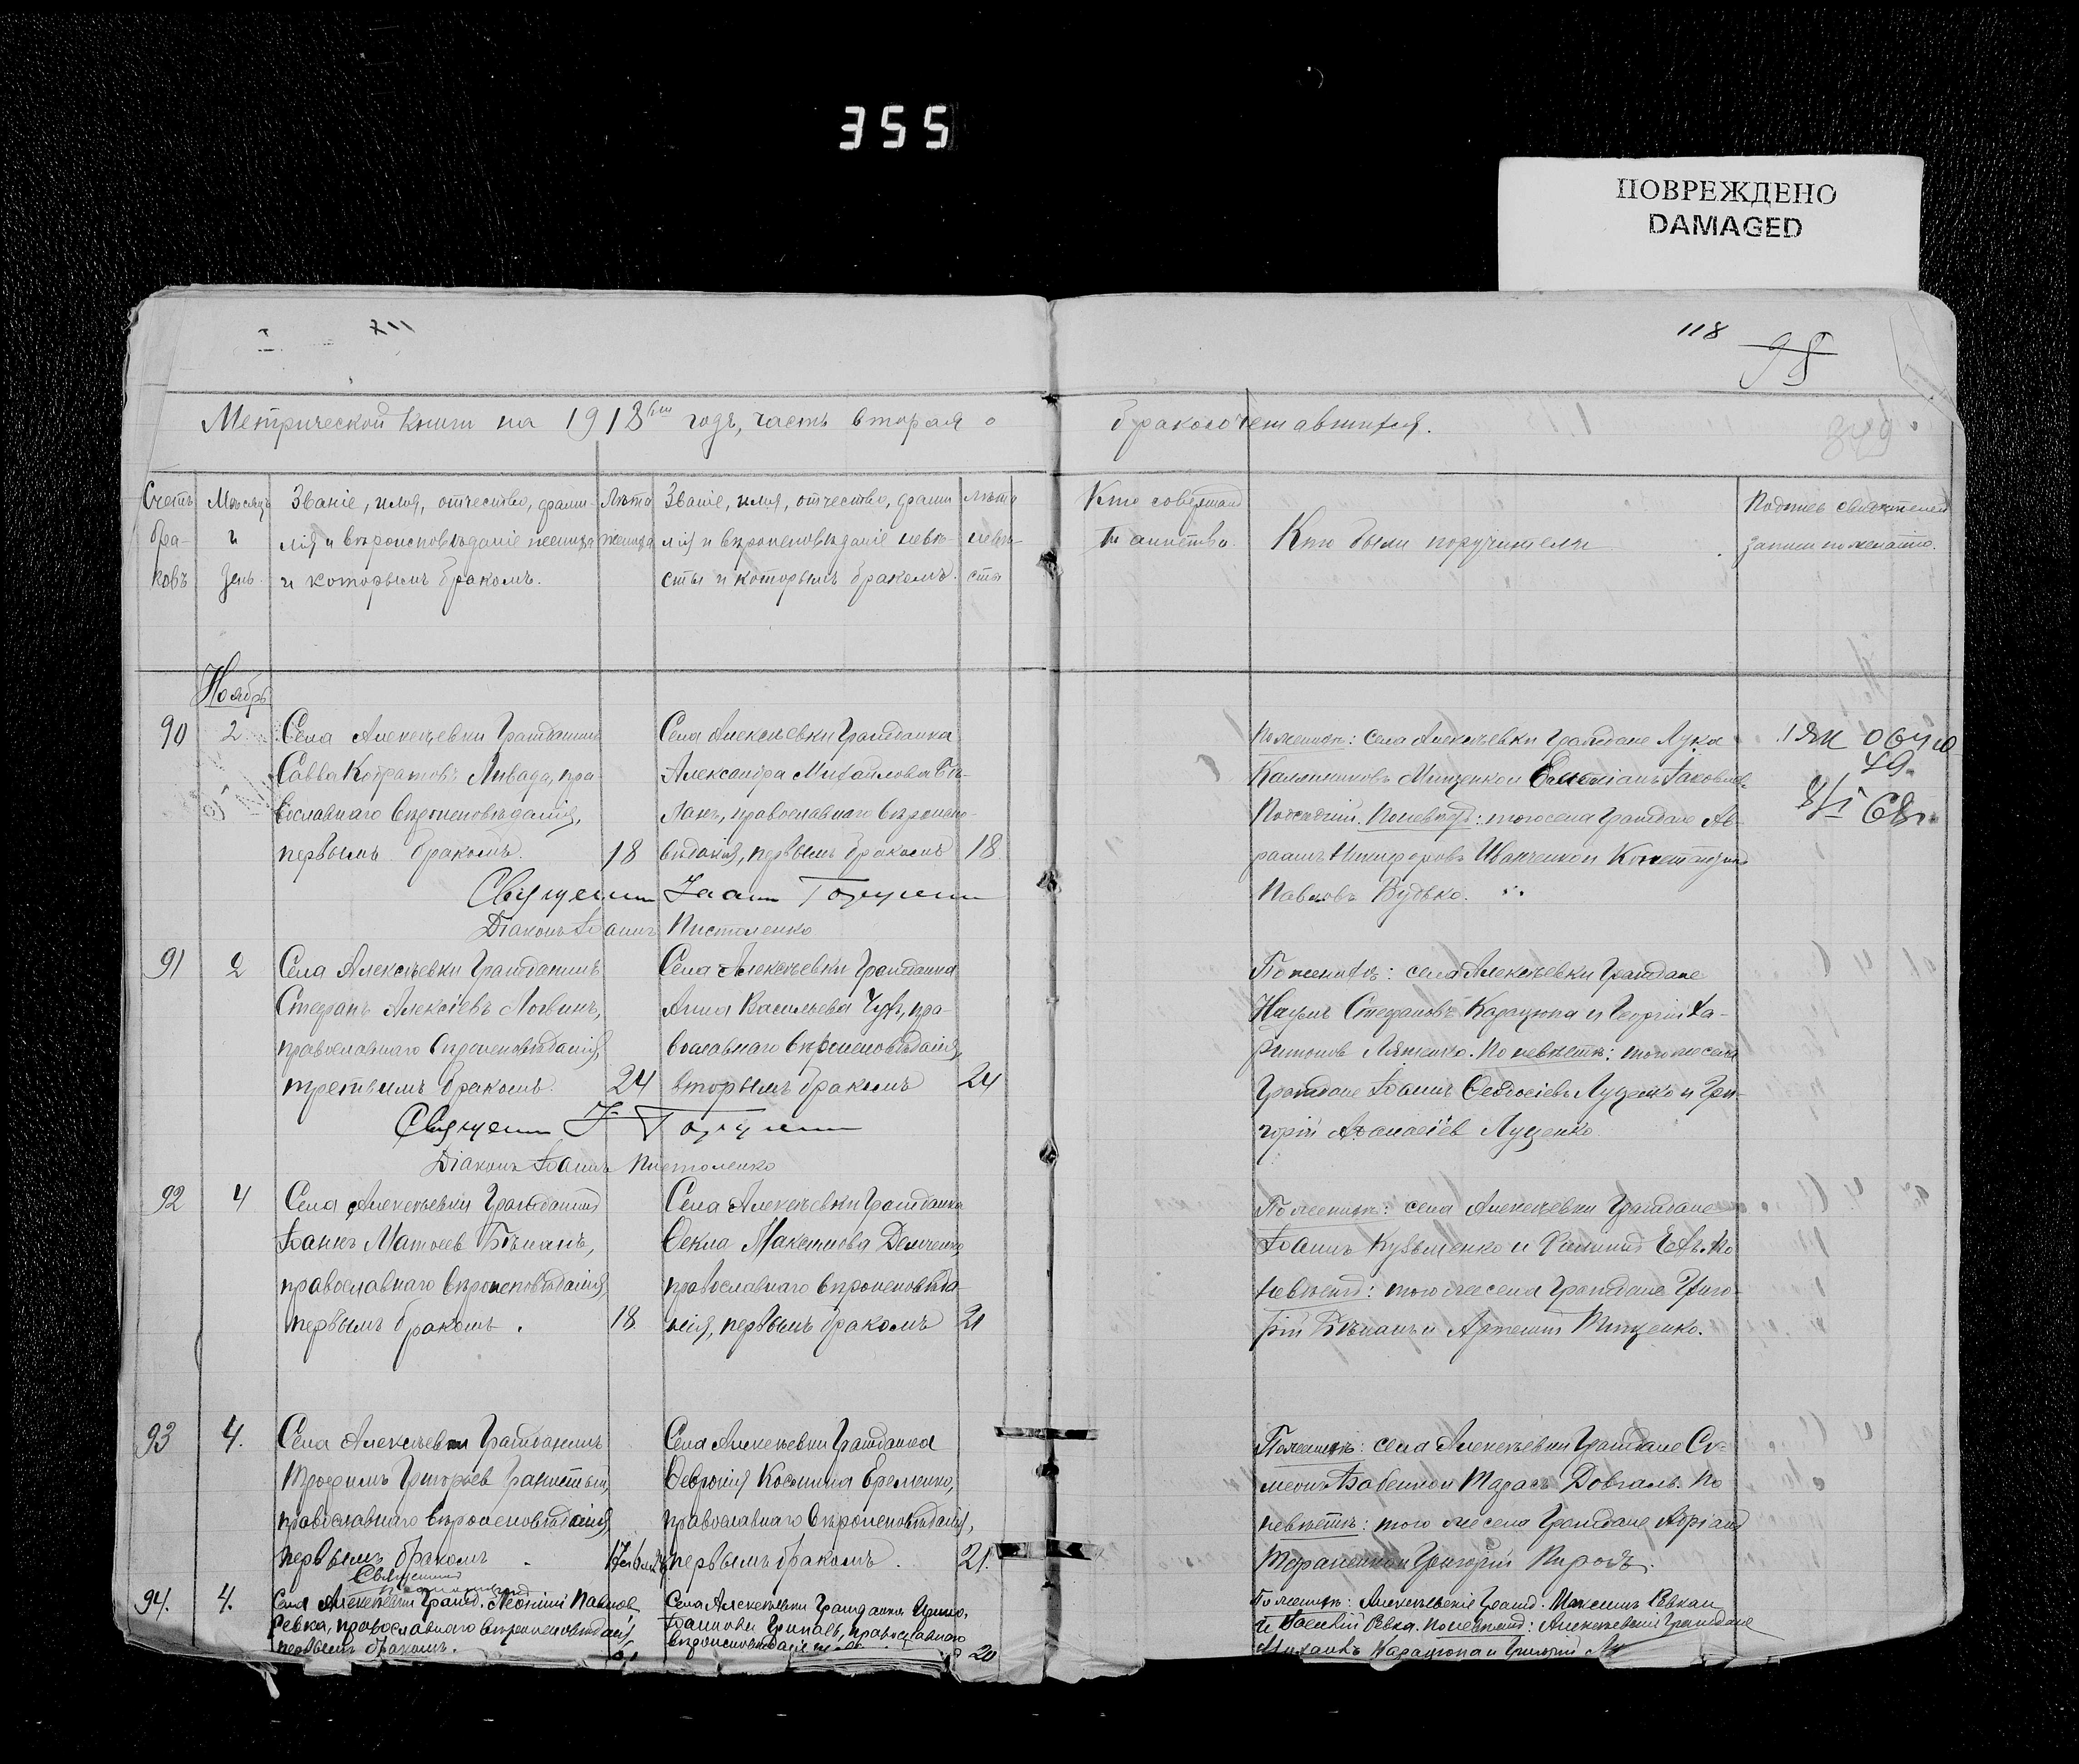 355
ПОВРЕЖДЕНО
DAMAGED
118
98
Метрической книги на 1918 годъ, часть вторая о
бракосочетавшихся.
Счетъ бра-ковъ
Мѣсяцъ и день
Званіе, имя, отчество, фами-
лія и вѣроисповѣданіе жениха
и которымъ бракомъ.
Лѣта жениха
Званіе, имя, отчество, фами
лія и вѣроисповѣданіе невѣ-
сты и которымъ бракомъ.
Лѣта невѣ-сты
Кто совершалъ
Таинство.
Кто были поручители
Подпись свидѣтелей
записи по желанію.
Ноябрь
90 2
Села Алексѣевки Гражданинъ
Савва Кодратовъ Ливада, пра-
вославнаго вѣроисповѣданія,
первымъ бракомъ. 18
Села Алексѣевки Гражданка
Александра Михайлова Бѣ-
ланъ, православнаго вѣроиспо-
вѣданія, первымъ бракомъ 18
Священникъ Іоаннъ
Діаконъ Іоаннъ Пистоленко
По женихѣ: села Алексѣевки Граждане Лука
Калинниковъ Мищенко и Іаковлев
По невѣстѣ: того села Граждане Ав-
раамъ Никифоровъ Иванченко и Константинъ
Павловъ Будько.
91 2
Села Алексѣевки Гражданинъ
Стефанъ Алексіевъ Логвинъ,
православнаго вѣроисповѣданія,
третьимъ бракомъ. 24
Села Алексѣевки Гражданка
Анна Васильева Чухъ, пра-
вославнаго вѣроисповѣданія,
вторымъ бракомъ 24
Священникъ І.
Діаконъ Іоаннъ Пистоленко
По женихѣ: села Алексѣевки Граждане
Наумъ Стефановъ Карацюпа и Георгій Ха-
ритоновъ Ляшенко. По невѣстѣ: того же села
Граждане Іоаннъ Ѳеодосіевъ Луценко и Гри-
горій Аѳанасіев Луценко.
92 4
Села Алексѣевки Гражданинъ
Іоаннъ Матѳеев Бѣланъ,
православнаго вѣроисповѣданія,
первымъ бракомъ. 18
Села Алексѣевки Гражданка
Ѳекла Максимова Демченко,
православнаго вѣроисповѣда-
нія, первымъ бракомъ 21
По женихѣ: села Алексѣевки Граждане
Іоаннъ Кузьменко и По
невѣстѣ: того же села Граждане Григо-
рій Бѣланъ и Артемій Тищенко.
93 4.
Села Алексѣевки Гражданинъ
Трофимъ Григорьев
православнаго вѣроисповѣданія,
первымъ бракомъ.
Села Алексѣевки Гражданка
Ѳевронія Космина Еременко,
православнаго вѣроисповѣданія,
первымъ бракомъ. 21.
По женихѣ: села Алексѣевки Граждане Си-
меонъ Бабенко и Тарасъ Довгаль. По
невѣстѣ: того же села Граждане Адріанъ
Тараненко и Григорій
94. 4.
Села Алексѣевки Гражд. Леонтій Павлов
Ревка, православнаго вѣроисповѣданія,
первымъ бракомъ.
Села Алексѣевки Гражданка Ирина
Іоаннова православнаго
вѣроисповѣданія 20
По женихѣ: Алексѣевскіе Гражд. Максимъ Ревка и
и Василій Ревка. По невѣстѣ: Алексѣевскіе Граждане
Михаилъ Карацюпа и Григорій